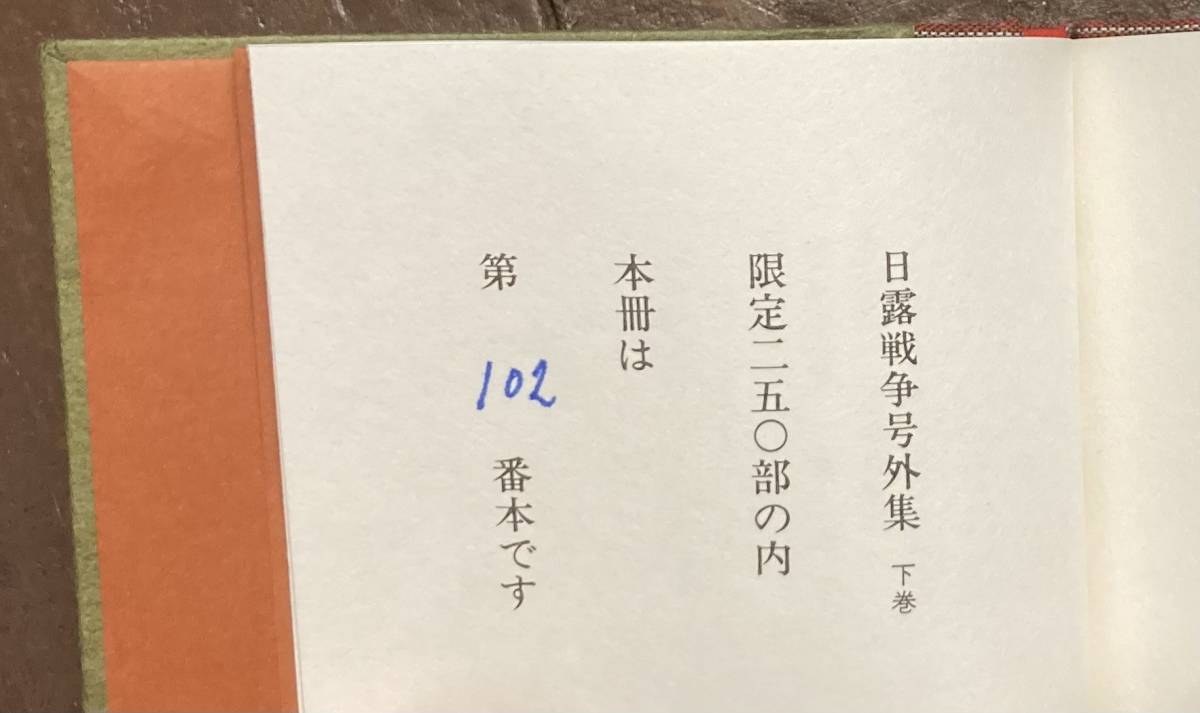 日露戦争号外集 下巻
限定二五〇部の内
本冊は
第 102 番本です